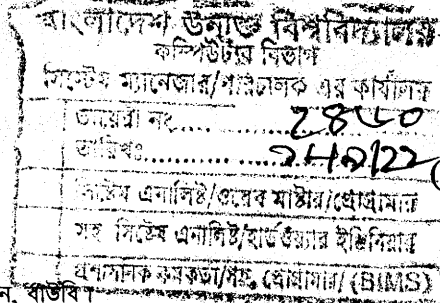 বাংলাদেশ উন্মুক্ত বিশ্ববিদ্যালয়
কম্পিউটার বিভাগ
সিস্টেম ম্যানেজার/পরিচালক এর কার্যালয়
ডায়েরী নং..............
তারিখঃ..............
সিস্টেম এনালিষ্ট/ওয়েব মাষ্টার/প্রোগ্রামার
সহ সিস্টেম এনালিষ্ট/হার্ডওয়্যার ইঞ্জিনিয়ার
প্রশাসনিক কর্মকর্তা/সহ. প্রোগ্রামার/ (BIMS)
ন, বাউবি।